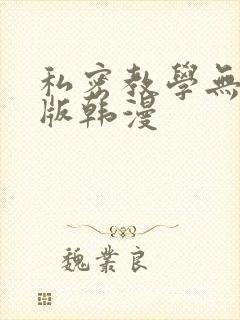 私密教學無
版韩漫
魏業良